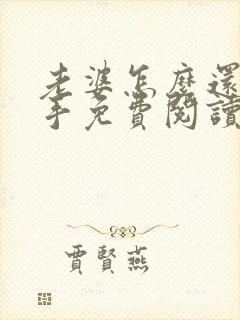 老婆怎麼還
手免費閱讀
賈賢燕